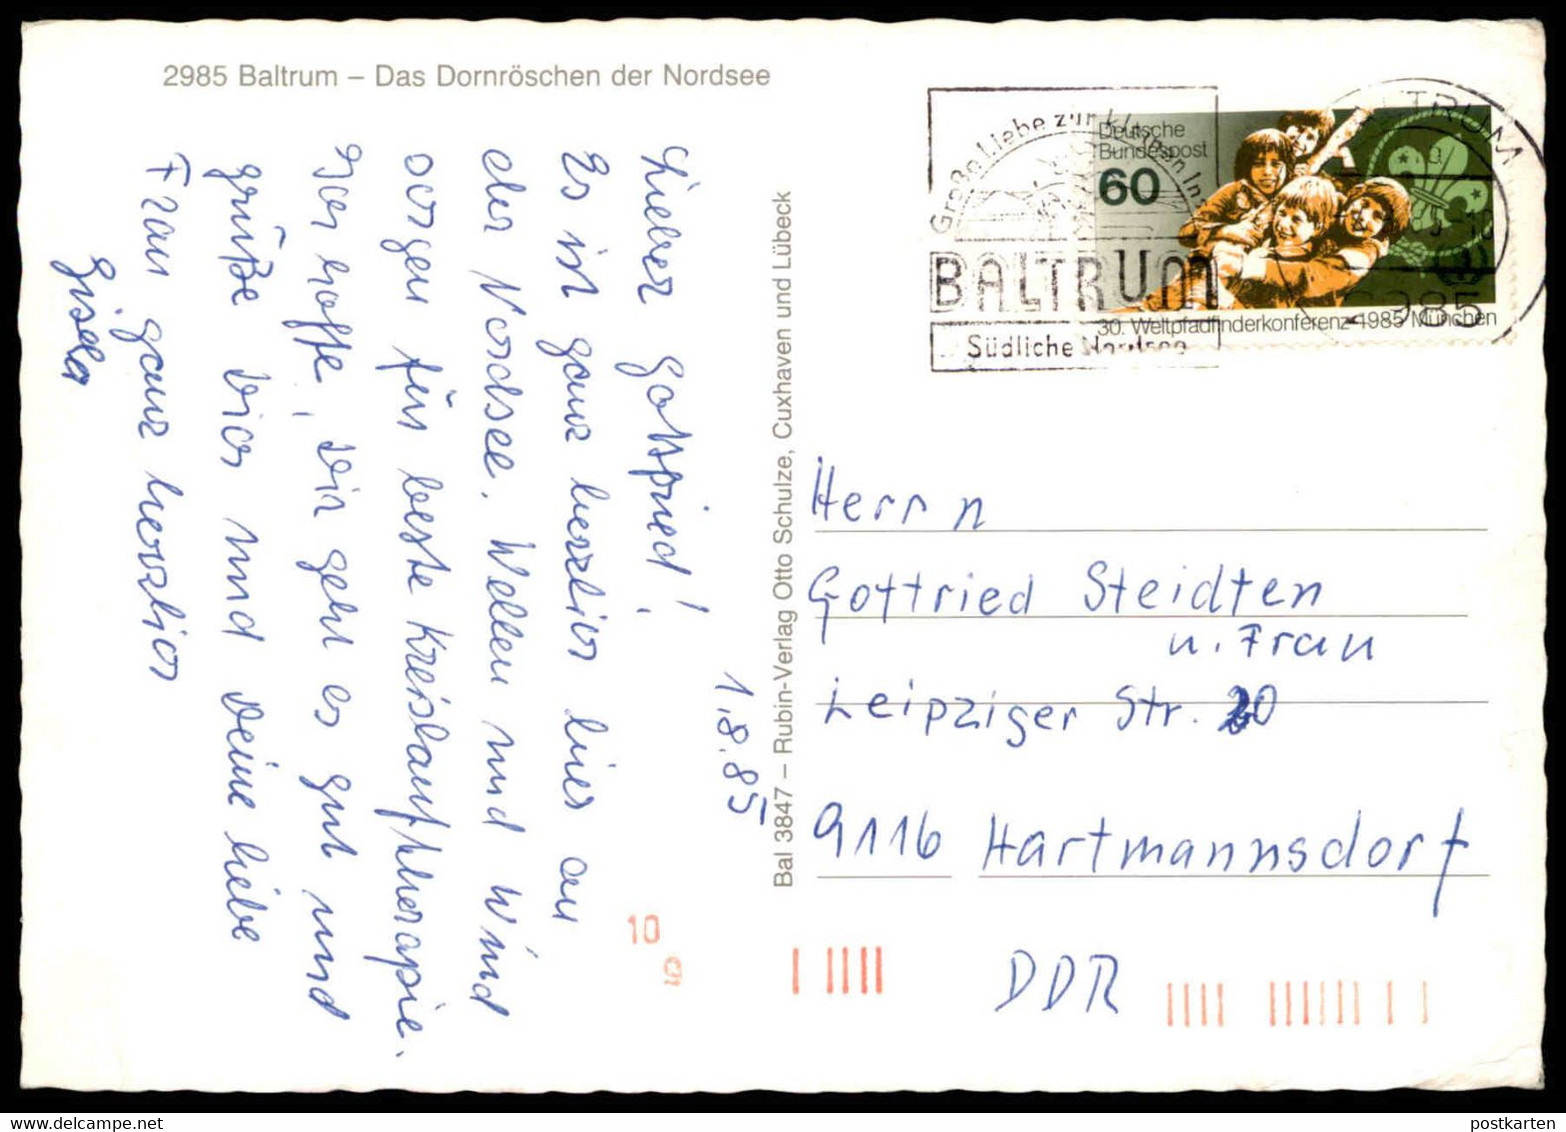 2985 Baltrum – Das Dornröschen der Nordsee
Lieber Gottfried!
Es ist ganz herrlich hier an
der Nordsee. Wellen und Wind
sorgen für beste Kreislauftherapie.
Ich hoffe, Dir geht es gut und
grüße Dich und Deine liebe
Frau ganz herzlich
Gisela
1.8.85
Bal 3847 – Rubin-Verlag Otto Schulze, Cuxhaven und Lübeck
Große Liebe zur kleinen In
BALTRUM
Südliche Nordsee
Deutsche
Bundespost
60
30. Weltpfadfinderkonferenz 1985 München
BALTRUM
2985
Herrn
Gottfried Steidten
u. Frau
Leipziger Str. 20
9116 Hartmannsdorf
DDR
10
9
postkarten